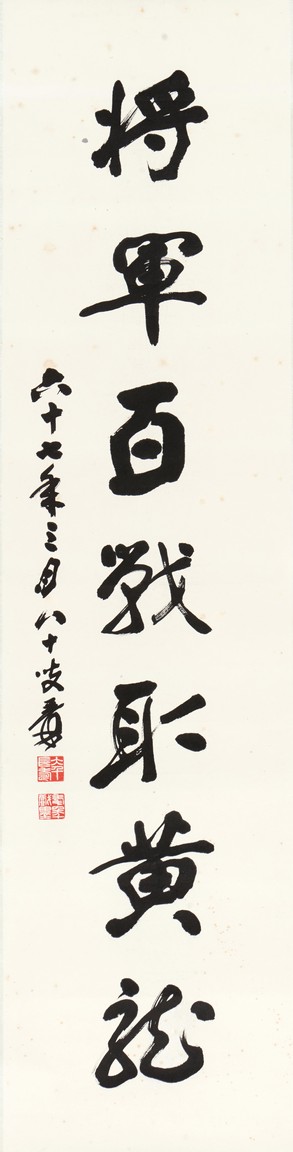 將軍百戰取黃龍
六十七年三月八十叟爰